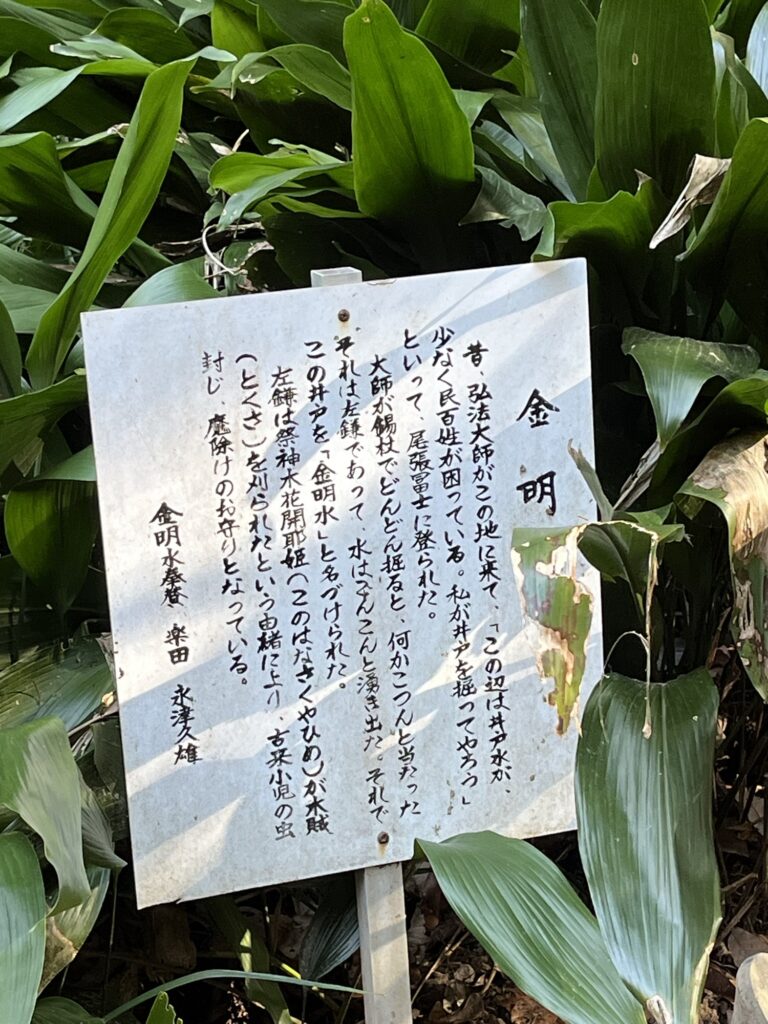 金明
昔、弘法大師がこの地に来て、「この辺は井戸水が、
少なく民百姓が困っている。私が井戸を掘ってやろう」
といって、尾張冨士に登られた。
大師が錫杖でどんどん掘ると、何かこつんと当たった
それは左鎌であって、水はこんこんと湧き出た。それで
この井戸を「金明水」と名づけられた。
左鎌は祭神木花開耶姫(このはなさくやひめ)が木賊
(とくさ)を刈られたという由緒により、古来小児の虫
封じ、魔除けのお守りとなっている。
金明水奉賛 楽田 永津久雄